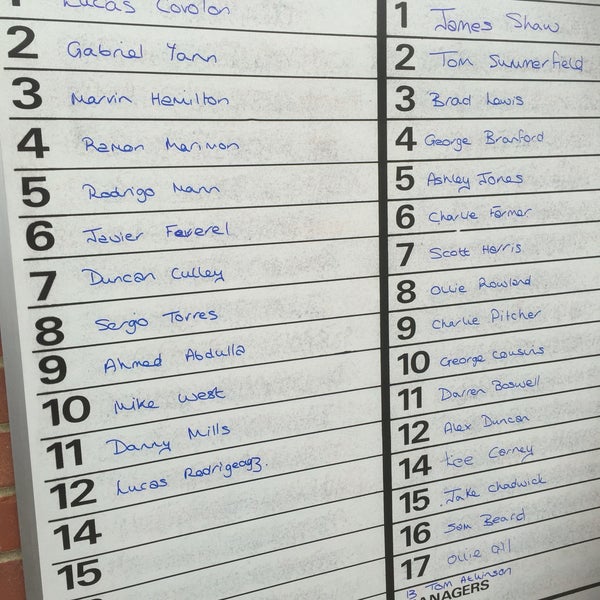 1 Lucas Covolon
2 Gabriel Yann
3 Marvin Hamilton
4 Ramon Marimon
5 Rodrigo Mann
6 Javier Faverel
7 Duncan Culley
8 Sergio Torres
9 Ahmed Abdulla
10 Mike West
11 Danny Mills
12 Lucas
14
15
1 James Shaw
2 Tom Summerfield
3 Brad Lewis
4 George Branford
5 Ashley Jones
6 Charlie Farmer
7 Scott Harris
8 Ollie Rowland
9 Charlie Pitcher
10 George Cousins
11 Darren Boswell
12 Alex Duncan
14 Lee Carney
15 Jake Chadwick
16 Sam Beard
17 Ollie Gill
13 Tom Atkinson
ANAGERS